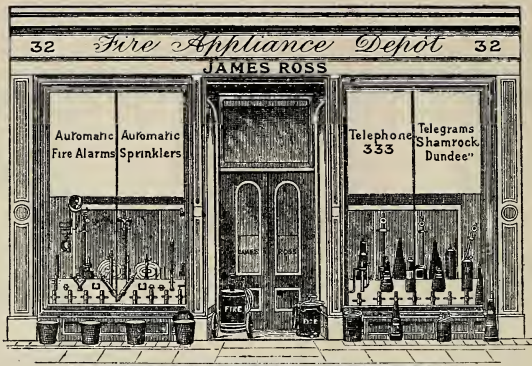 32 Fire Appliance Depôt 32
JAMES ROSS
Automatic Fire Alarms
Automatic Sprinklers
Telephone 333
Telegrams Shamrock Dundee"
JAMES ROSS
FIRE